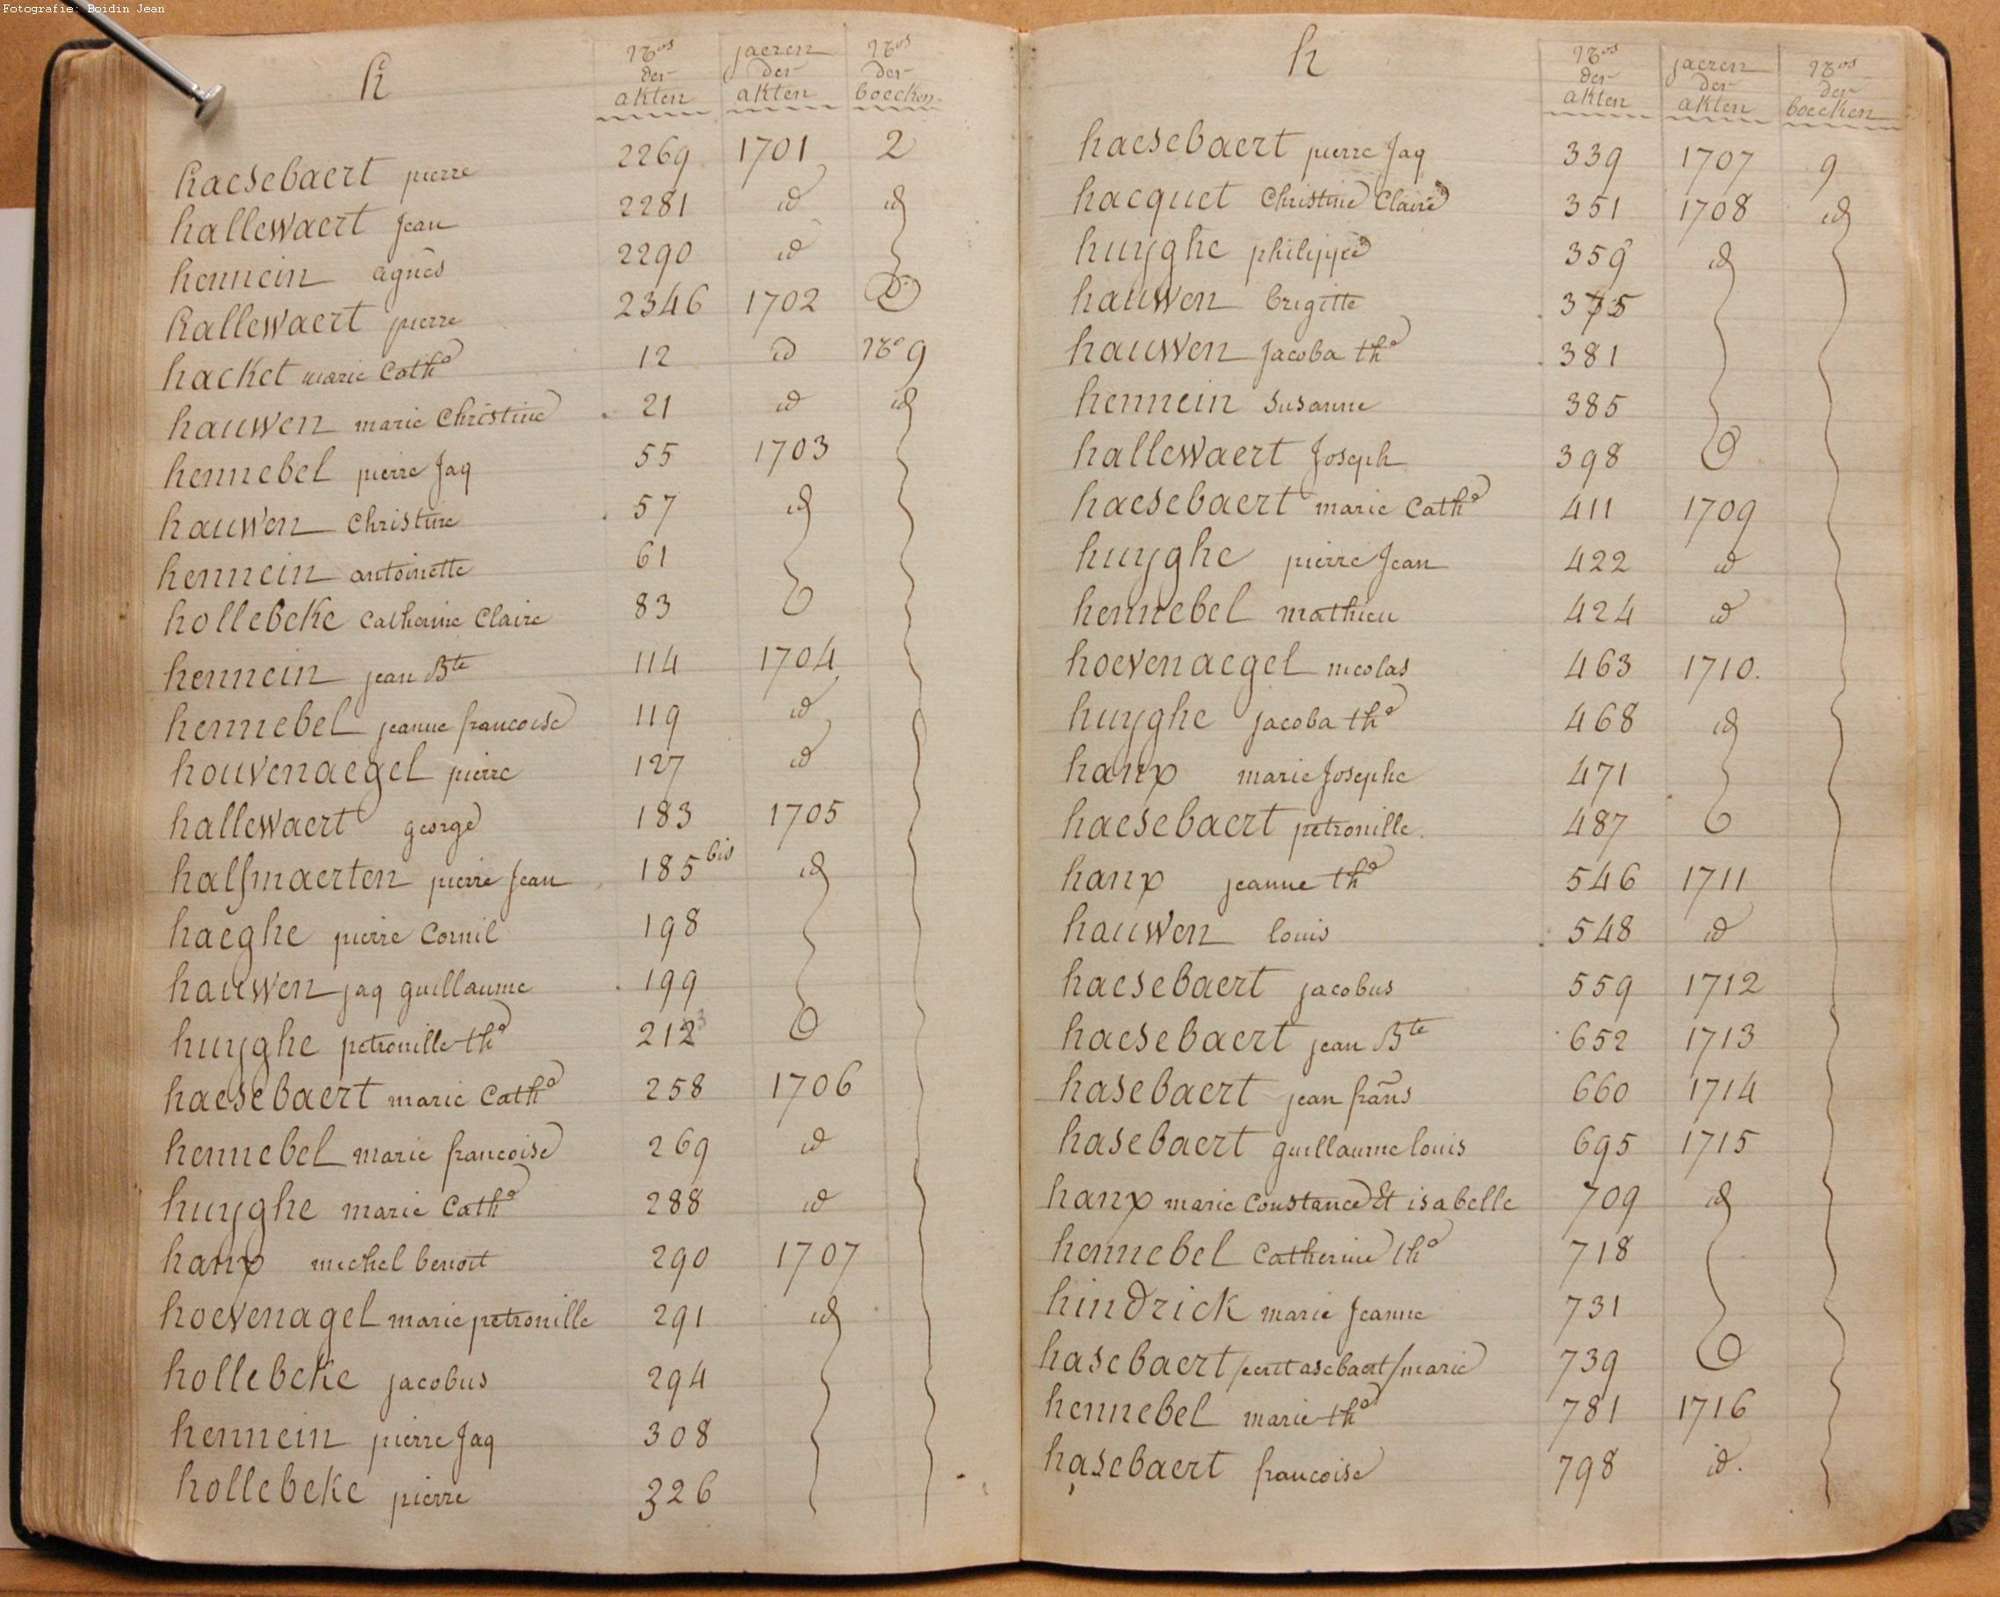 Fotografie: Boidin Jean
h
Nos der akten
jaeren der akten
Nos der boecken
haesebaert pierre 2269 1701 2
hallewaert Jean 2281 id id
hennein agnes 2290 id
hallewaert pierre 2346 1702
hacket marie Cathe 12 id No 9
hauwen marie Christine 21 id id
hennebel pierre Jaq 55 1703
hauwen Christine 57 id
hennein antoinette 61
hollebeke Catherine Claire 83
hennein jean Bte 114 1704
hennebel jeanne francoise 119 id
houvenaegel pierre 127 id
hallewaert george 183 1705
halsmaerten pierre Jean 185 bis id
haeghe pierre Cornil 198
hauwen jaq guillaume 199
huyghe petronille the 212
haesebaert marie Cathe 258 1706
hennebel marie francoise 269 id
huyghe marie Cathe 288 id
hanx michel benoit 290 1707
hoevenagel marie petronille 291 id
hollebeke jacobus 294
hennein pierre Jaq 308
hollebeke pierre 326
h
Nos der akten
jaeren der akten
Nos der boecken
haesebaert pierre Jaq 339 1707 9
hacquet Christine Claire 351 1708 id
huyghe philippe 359 id
hauwen brigitte 375
hauwen Jacoba the 381
hennein Susanne 385
hallewaert Joseph 398
haesebaert marie Cathe 411 1709
huyghe pierre Jean 422 id
hennebel mathieu 424 id
hoevenaegel nicolas 463 1710.
huyghe jacoba the 468 id
hanx marie Josephe 471
haesebaert petronille 487
hanx jeanne the 546 1711
hauwen louis 548 id
haesebaert jacobus 559 1712
haesebaert jean Bte 652 1713
hasebaert jean frans 660 1714
hasebaert guillaume louis 695 1715
hanx marie Constance et isabelle 709 id
hennebel Catherine the 718
hindrick marie Jeanne 731
hasebaert /ecrit asebaert/ marie 739
hennebel marie the 781 1716
hasebaert francoise 798 id.